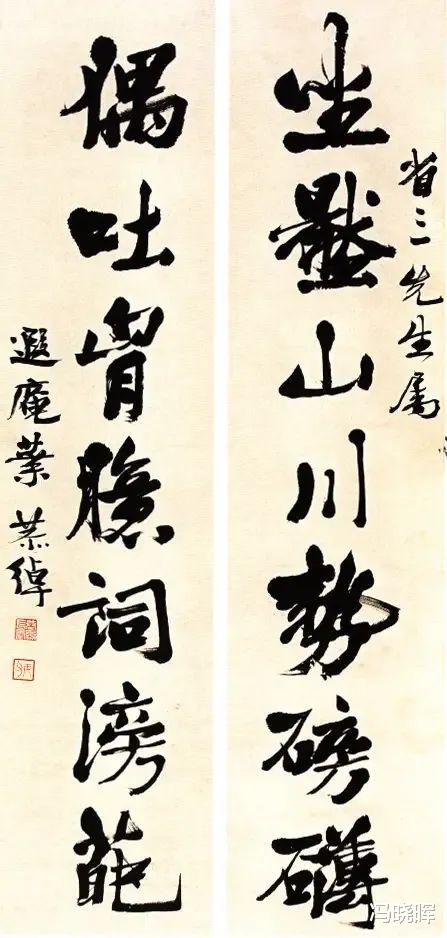 省三先生属
坐山川勢磅礴
偶吐胷臆詞滂葩
遐庵葉恭綽
冯晓晖